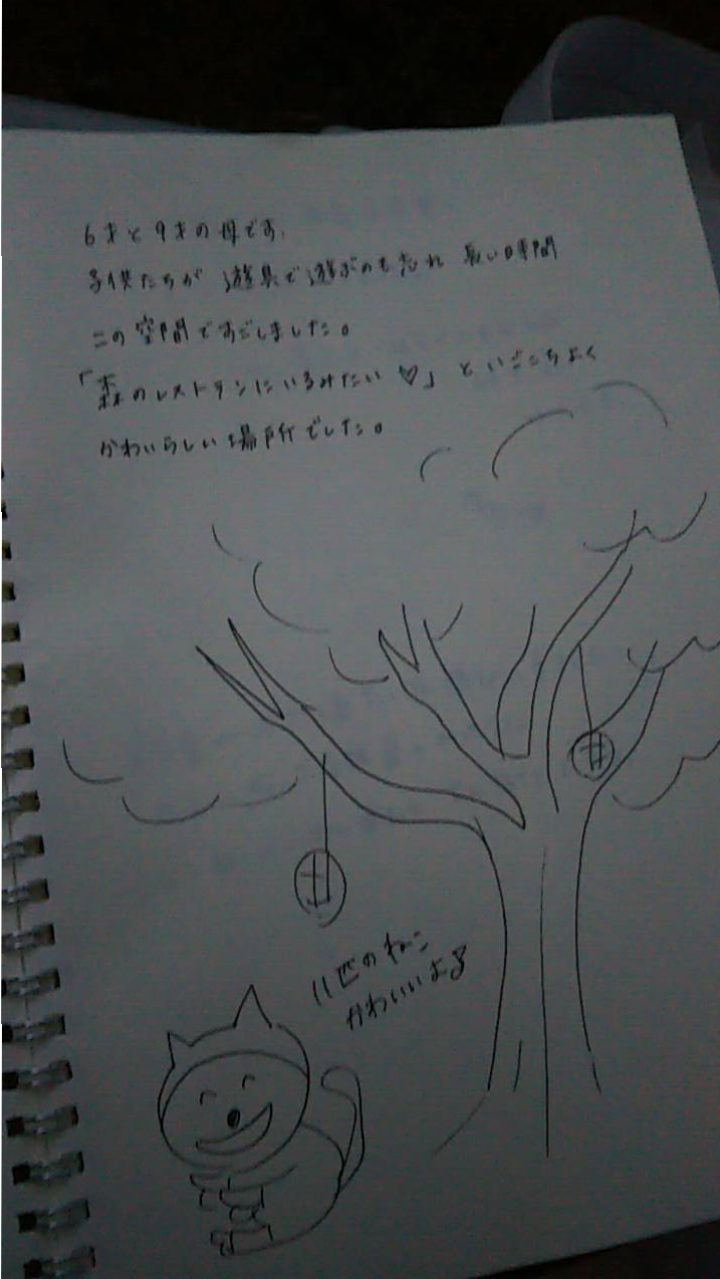 6才と9才の母です。
子供たちが 遊具で遊ぶのも忘れ 長い時間
この空間ですごしました。
「森のレストランにいるみたい♡」といごこちよく
かわいらしい場所でした。
11匹のねこ
かわいいよ